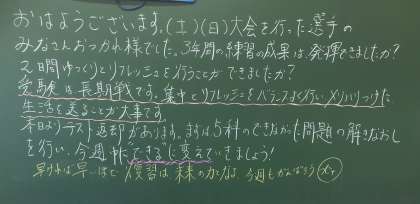 おはようございます。(土)(日)大会を行った選手の
みなさんおつかれ様でした。3年間の練習の成果は、発揮できましたか?
2日間ゆっくりとリフレッシュを行うことができましたか?
受験は長期戦です。集中とリフレッシュをバランスよく行い、メリハリつけた
生活を送ることが大事です。
本日よりテスト返却があります。まずは5科のできなかった問題の解きなおし
を行い、今週中に"できる"に変えていきましょう!
早ければ早いほど復習は未来の力になる 今週もがんばろう